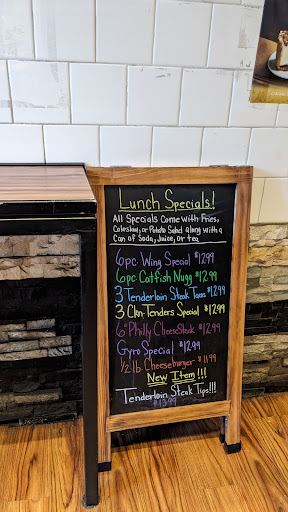 Lunch Specials!
All Specials Come With Fries,
Coleslaw, or Potato Salad along with a
Can of Soda, Juice, or tea
6pc Wing Special $12.99
6pc Catfish Nugg $12.99
3 Tenderloin Steak Tacos $12.99
3 Ckn-Tenders Special $12.99
6" Philly CheeseSteak $12.99
Gyro Special $12.99
1/2 lb. Cheeseburger $11.99
New Item!!!
Tenderloin Steak Tips!!!
$13.99